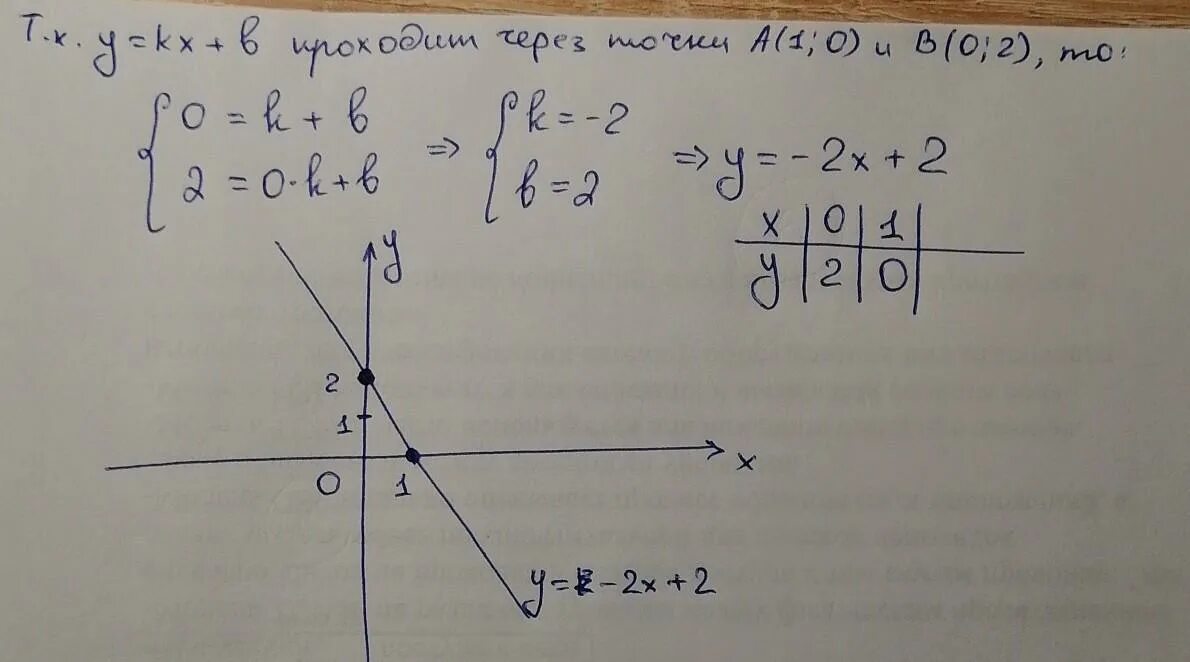 Т.к. y = kx + b проходит через точки A(1; 0) и B(0; 2), то:
{ 0 = k + b
2 = 0·k + b
=> { k = -2
b = 2
=> y = -2x + 2
x | 0 | 1 |
y | 2 | 0 |
y
2
1
0 1 x
y = - 2x + 2